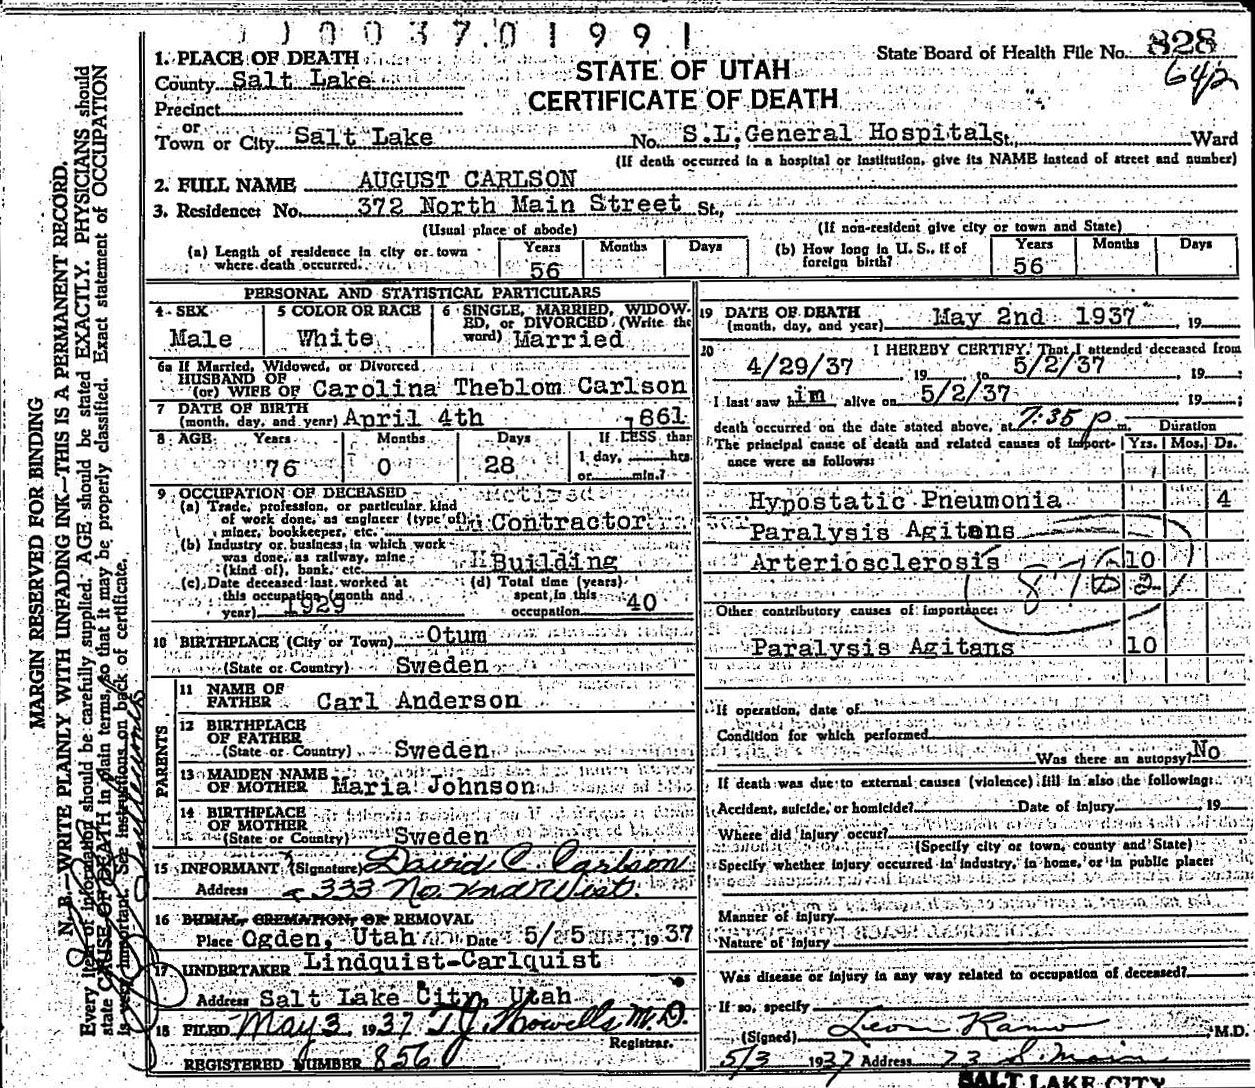 003701991
State Board of Health File No. 828
64/2
STATE OF UTAH
CERTIFICATE OF DEATH
1. PLACE OF DEATH
County Salt Lake
Precinct
or
Town or City Salt Lake No. S.L. General Hospital St., Ward
(If death occurred in a hospital or institution, give its NAME instead of street and number)
2. FULL NAME AUGUST CARLSON
3. Residence: No. 372 North Main Street St.,
(Usual place of abode) (If non-resident give city or town and State)
(a) Length of residence in city or town where death occurred. Years 56 Months Days
(b) How long in U. S., if of foreign birth? Years 56 Months Days
PERSONAL AND STATISTICAL PARTICULARS
4 SEX Male
5 COLOR OR RACE White
6 SINGLE, MARRIED, WIDOWED, or DIVORCED (Write the word) Married
6a If Married, Widowed, or Divorced
HUSBAND OF
(or) WIFE OF Carolina Theblom Carlson
7 DATE OF BIRTH
(month, day, and year) April 4th 1861
8 AGE Years 76 Months 0 Days 28 If LESS than 1 day, hrs. or min.?
9 OCCUPATION OF DECEASED
(a) Trade, profession, or particular kind
of work done, as engineer (type of)
miner, bookkeeper, etc. Contractor
(b) Industry or business in which work
was done, as railway, mine
(kind of), bank, etc. Building
(c) Date deceased last worked at
this occupation (month and
year) 1929
(d) Total time (years)
spent in this
occupation 40
10 BIRTHPLACE (City or Town) Otum
(State or Country) Sweden
PARENTS
11 NAME OF
FATHER Carl Anderson
12 BIRTHPLACE
OF FATHER
(State or Country) Sweden
13 MAIDEN NAME
OF MOTHER Maria Johnson
14 BIRTHPLACE
OF MOTHER
(State or Country) Sweden
15 INFORMANT (Signature) David C. Carlson
Address 333 No. 2nd West.
16 BURIAL, CREMATION, OR REMOVAL
Place Ogden, Utah Date 5/5 1937
17 UNDERTAKER Lindquist-Carlquist
Address Salt Lake City, Utah
18 FILED May 3, 1937 T.J. Howells M.D.
Registrar.
REGISTERED NUMBER 856
19 DATE OF DEATH
(month, day, and year) May 2nd 1937 19
20 I HEREBY CERTIFY, That I attended deceased from
4/29/37 19 to 5/2/37, 19;
I last saw him alive on 5/2/37 19;
death occurred on the date stated above, at 7:35 p m.
The principal cause of death and related causes of importance were as follows:
Duration
Yrs. Mos. Ds.
Hypostatic Pneumonia 4
Paralysis Agitans
Arteriosclerosis 10
Other contributory causes of importance:
Paralysis Agitans 10
If operation, date of
Condition for which performed
Was there an autopsy? No
If death was due to external causes (violence) fill in also the following:
Accident, suicide, or homicide? Date of injury 19
Where did injury occur?
(Specify city or town, county and State)
Specify whether injury occurred in industry, in home, or in public place:
Manner of injury
Nature of injury
Was disease or injury in any way related to occupation of deceased?
If so, specify
(Signed) M.D.
5/3 1937 Address 73 S. Main
SALT LAKE CITY
MARGIN RESERVED FOR BINDING
N. B.—WRITE PLAINLY WITH UNFADING INK—THIS IS A PERMANENT RECORD.
Every item of information should be carefully supplied. AGE should be stated EXACTLY. PHYSICIANS should
state CAUSE OF DEATH in plain terms, so that it may be properly classified. Exact statement of OCCUPATION
is very important. See instructions on back of certificate.